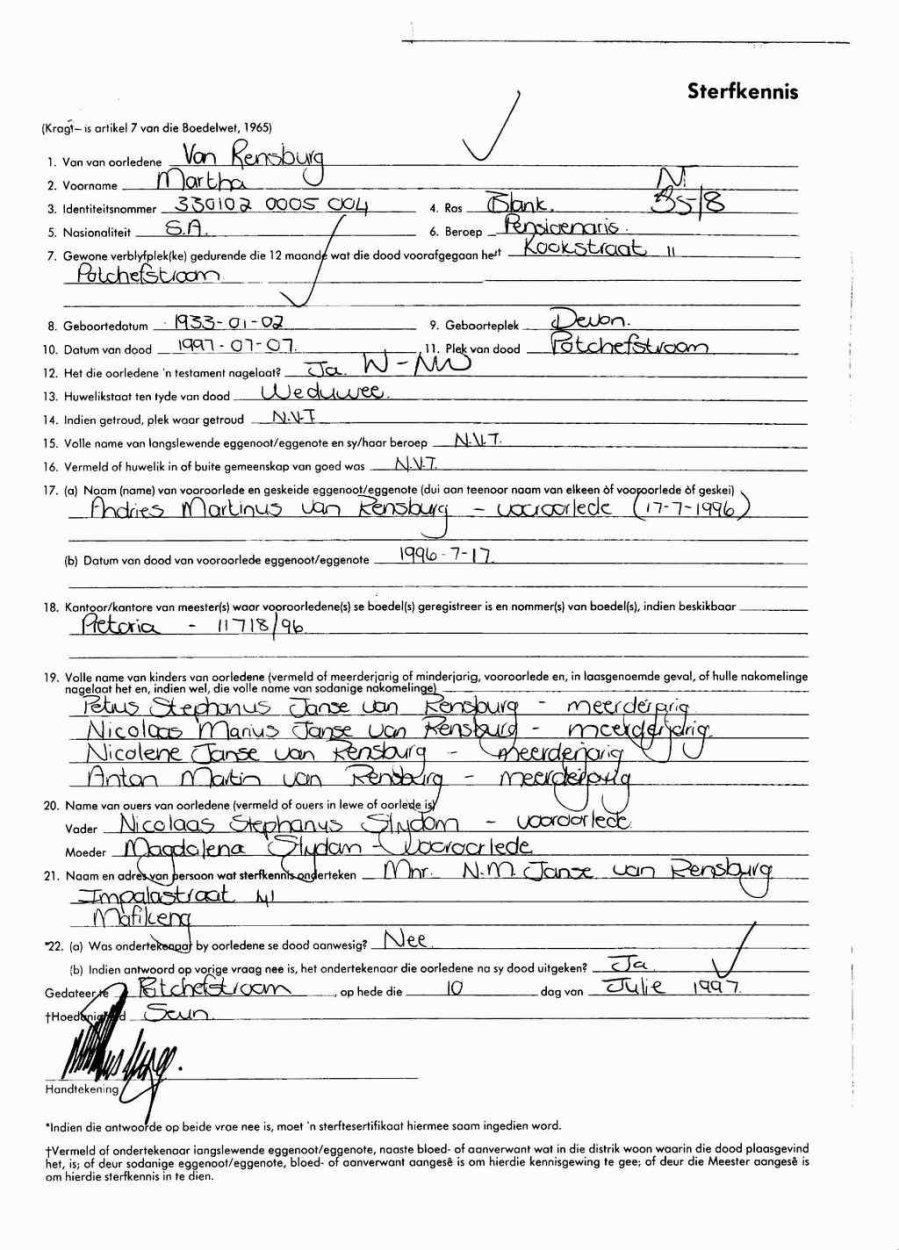 Sterfkennis
(Kragt– is artikel 7 van die Boedelwet, 1965)
1. Van van oorledene Van Rensburg
2. Voorname Martha
3. Identiteitsnommer 330102 0005 004 4. Ras Blank. 35/8
5. Nasionaliteit S.A. 6. Beroep Pensioenaris.
7. Gewone verblyfplek(ke) gedurende die 12 maande wat die dood voorafgegaan het† Kockstraat 11
Potchefstroom
8. Geboortedatum 1933-01-02 9. Geboorteplek Devon.
10. Datum van dood 1997-07-07. 11. Plek van dood Potchefstroom
12. Het die oorledene 'n testament nagelaat? Ja.
13. Huwelikstaat ten tyde van dood Weduwee.
14. Indien getroud, plek waar getroud N.V.T
15. Volle name van langslewende eggenoot/eggenote en sy/haar beroep N.V.T.
16. Vermeld of huwelik in of buite gemeenskap van goed was N.V.T.
17. (a) Naam (name) van vooroorlede en geskeide eggenoot/eggenote (dui aan teenoor naam van elkeen òf vooroorlede òf geskei)
Andries Martinus van Rensburg - vooroorlede (17-7-1996)
(b) Datum van dood van vooroorlede eggenoot/eggenote 1996-7-17
18. Kantoor/kantore van meester(s) waar vooroorledene(s) se boedel(s) geregistreer is en nommer(s) van boedel(s), indien beskikbaar
Pretoria - 11718/96
19. Volle name van kinders van oorledene (vermeld of meerderjarig of minderjarig, vooroorlede en, in laasgenoemde geval, of hulle nakomelinge
nagelaat het en, indien wel, die volle name van sodanige nakomelinge)
Petrus Stephanus Janse van Rensburg - meerderjarig
Nicolaas Marius Janse van Rensburg - meerderjarig.
Nicolene Janse van Rensburg - meerderjarig
Anton Martin van Rensburg - meerderjarig
20. Name van ouers van oorledene (vermeld of ouers in lewe of oorlede is)
Vader Nicolaas Stephanus Strydom - vooroorlede
Moeder Magdalena Strydom - Vooroorlede
21. Naam en adres van persoon wat sterfkennis onderteken Mnr. N.M. Janse van Rensburg
Impalastraat 41
Mafikeng
*22. (a) Was ondertekenaar by oorledene se dood aanwesig? Nee
(b) Indien antwoord op vorige vraag nee is, het ondertekenaar die oorledene na sy dood uitgeken? Ja
Gedateer te Potchefstroom , op hede die 10 dag van Julie 1997.
†Hoedanigheid Seun.
Handtekening
*Indien die antwoorde op beide vrae nee is, moet 'n sterftesertifikaat hiermee saam ingedien word.
†Vermeld of ondertekenaar langslewende eggenoot/eggenote, naaste bloed- of aanverwant wat in die distrik woon waarin die dood plaasgevind
het, is; of deur sodanige eggenoot/eggenote, bloed- of aanverwant aangesê is om hierdie kennisgewing te gee; of deur die Meester aangesê is
om hierdie sterfkennis in te dien.